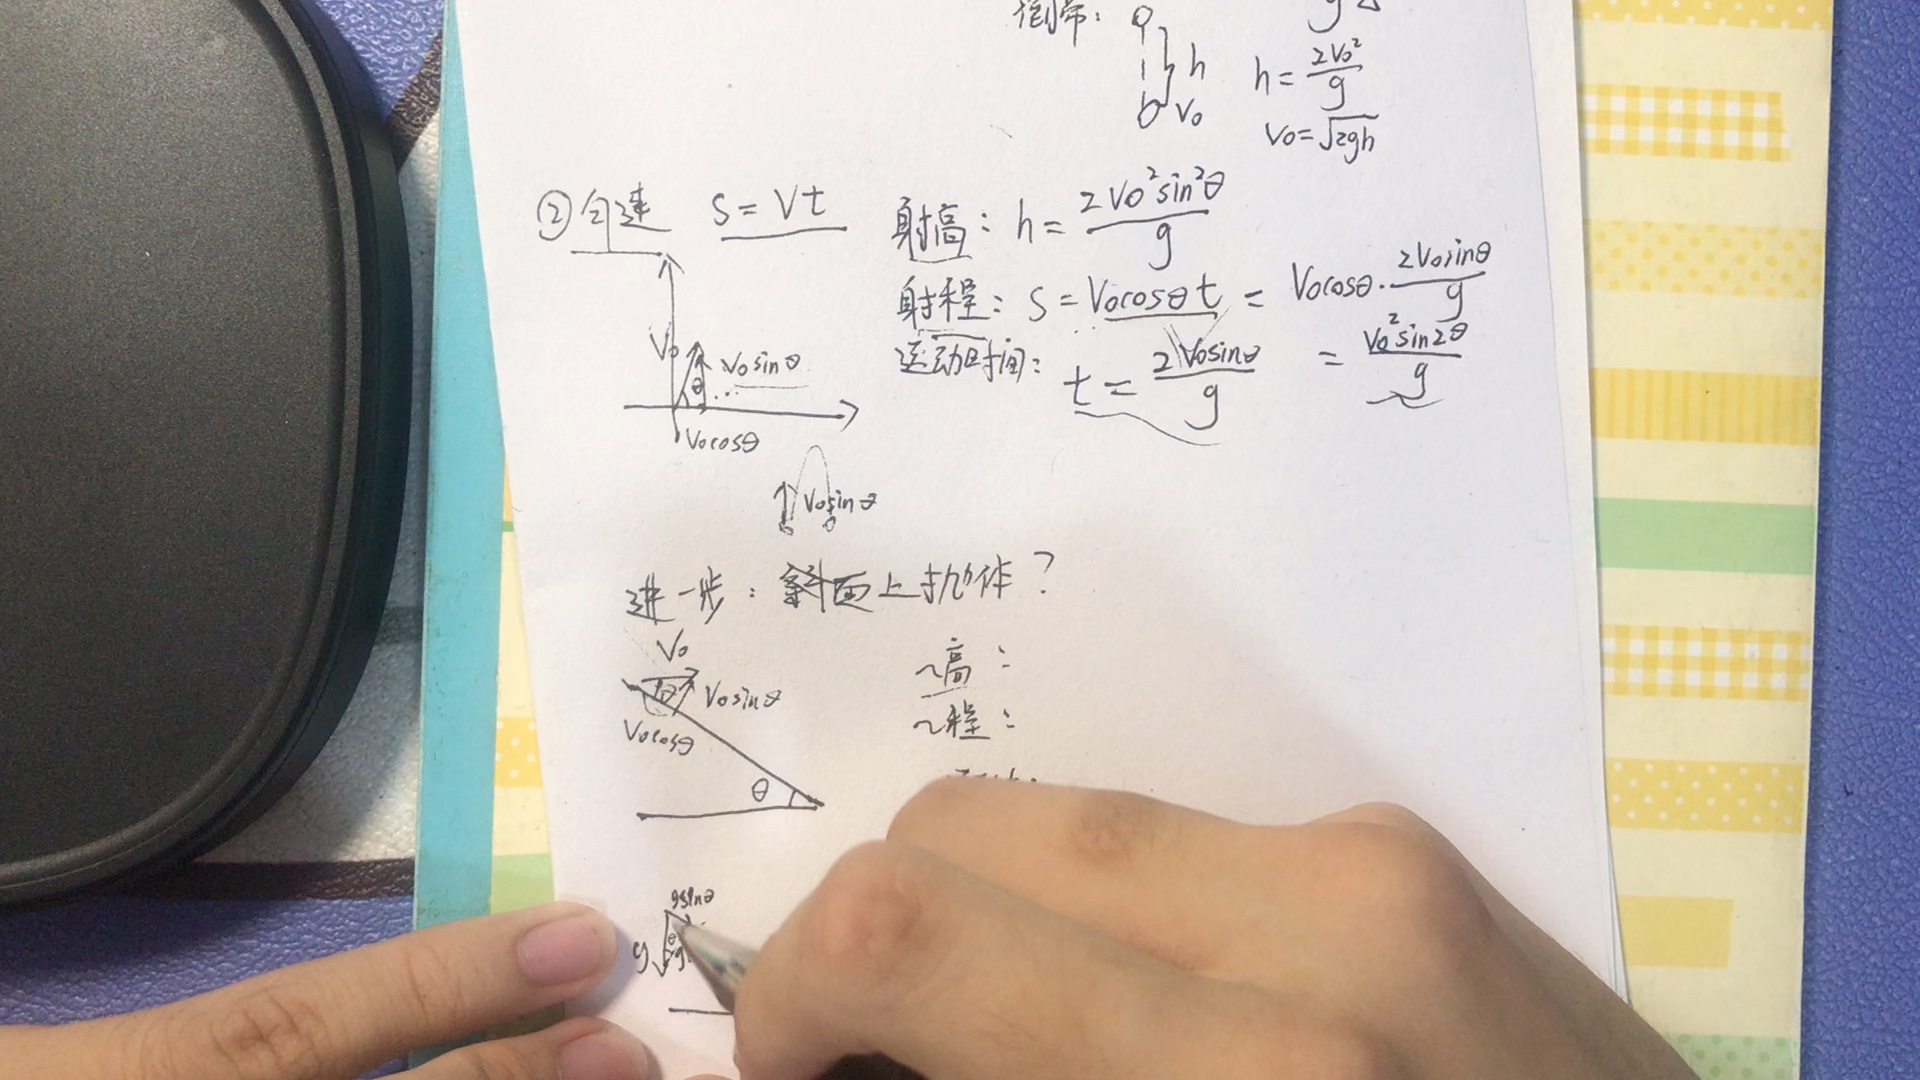 倒带: h v₀
h = 2v₀²/g
v₀ = √2gh
② 匀速 s = vt
射高: h = 2v₀²sin²θ/g
射程: s = v₀cosθ t = v₀cosθ · 2v₀sinθ/g
运动时间: t = 2v₀sinθ/g = v₀²sin2θ/g
v₀ v₀sinθ
θ
v₀cosθ
v₀sinθ
进一步: 斜面上抛体?
v₀
θ v₀sinθ
v₀cosθ
~高:
~程:
θ
gsinθ
g θ